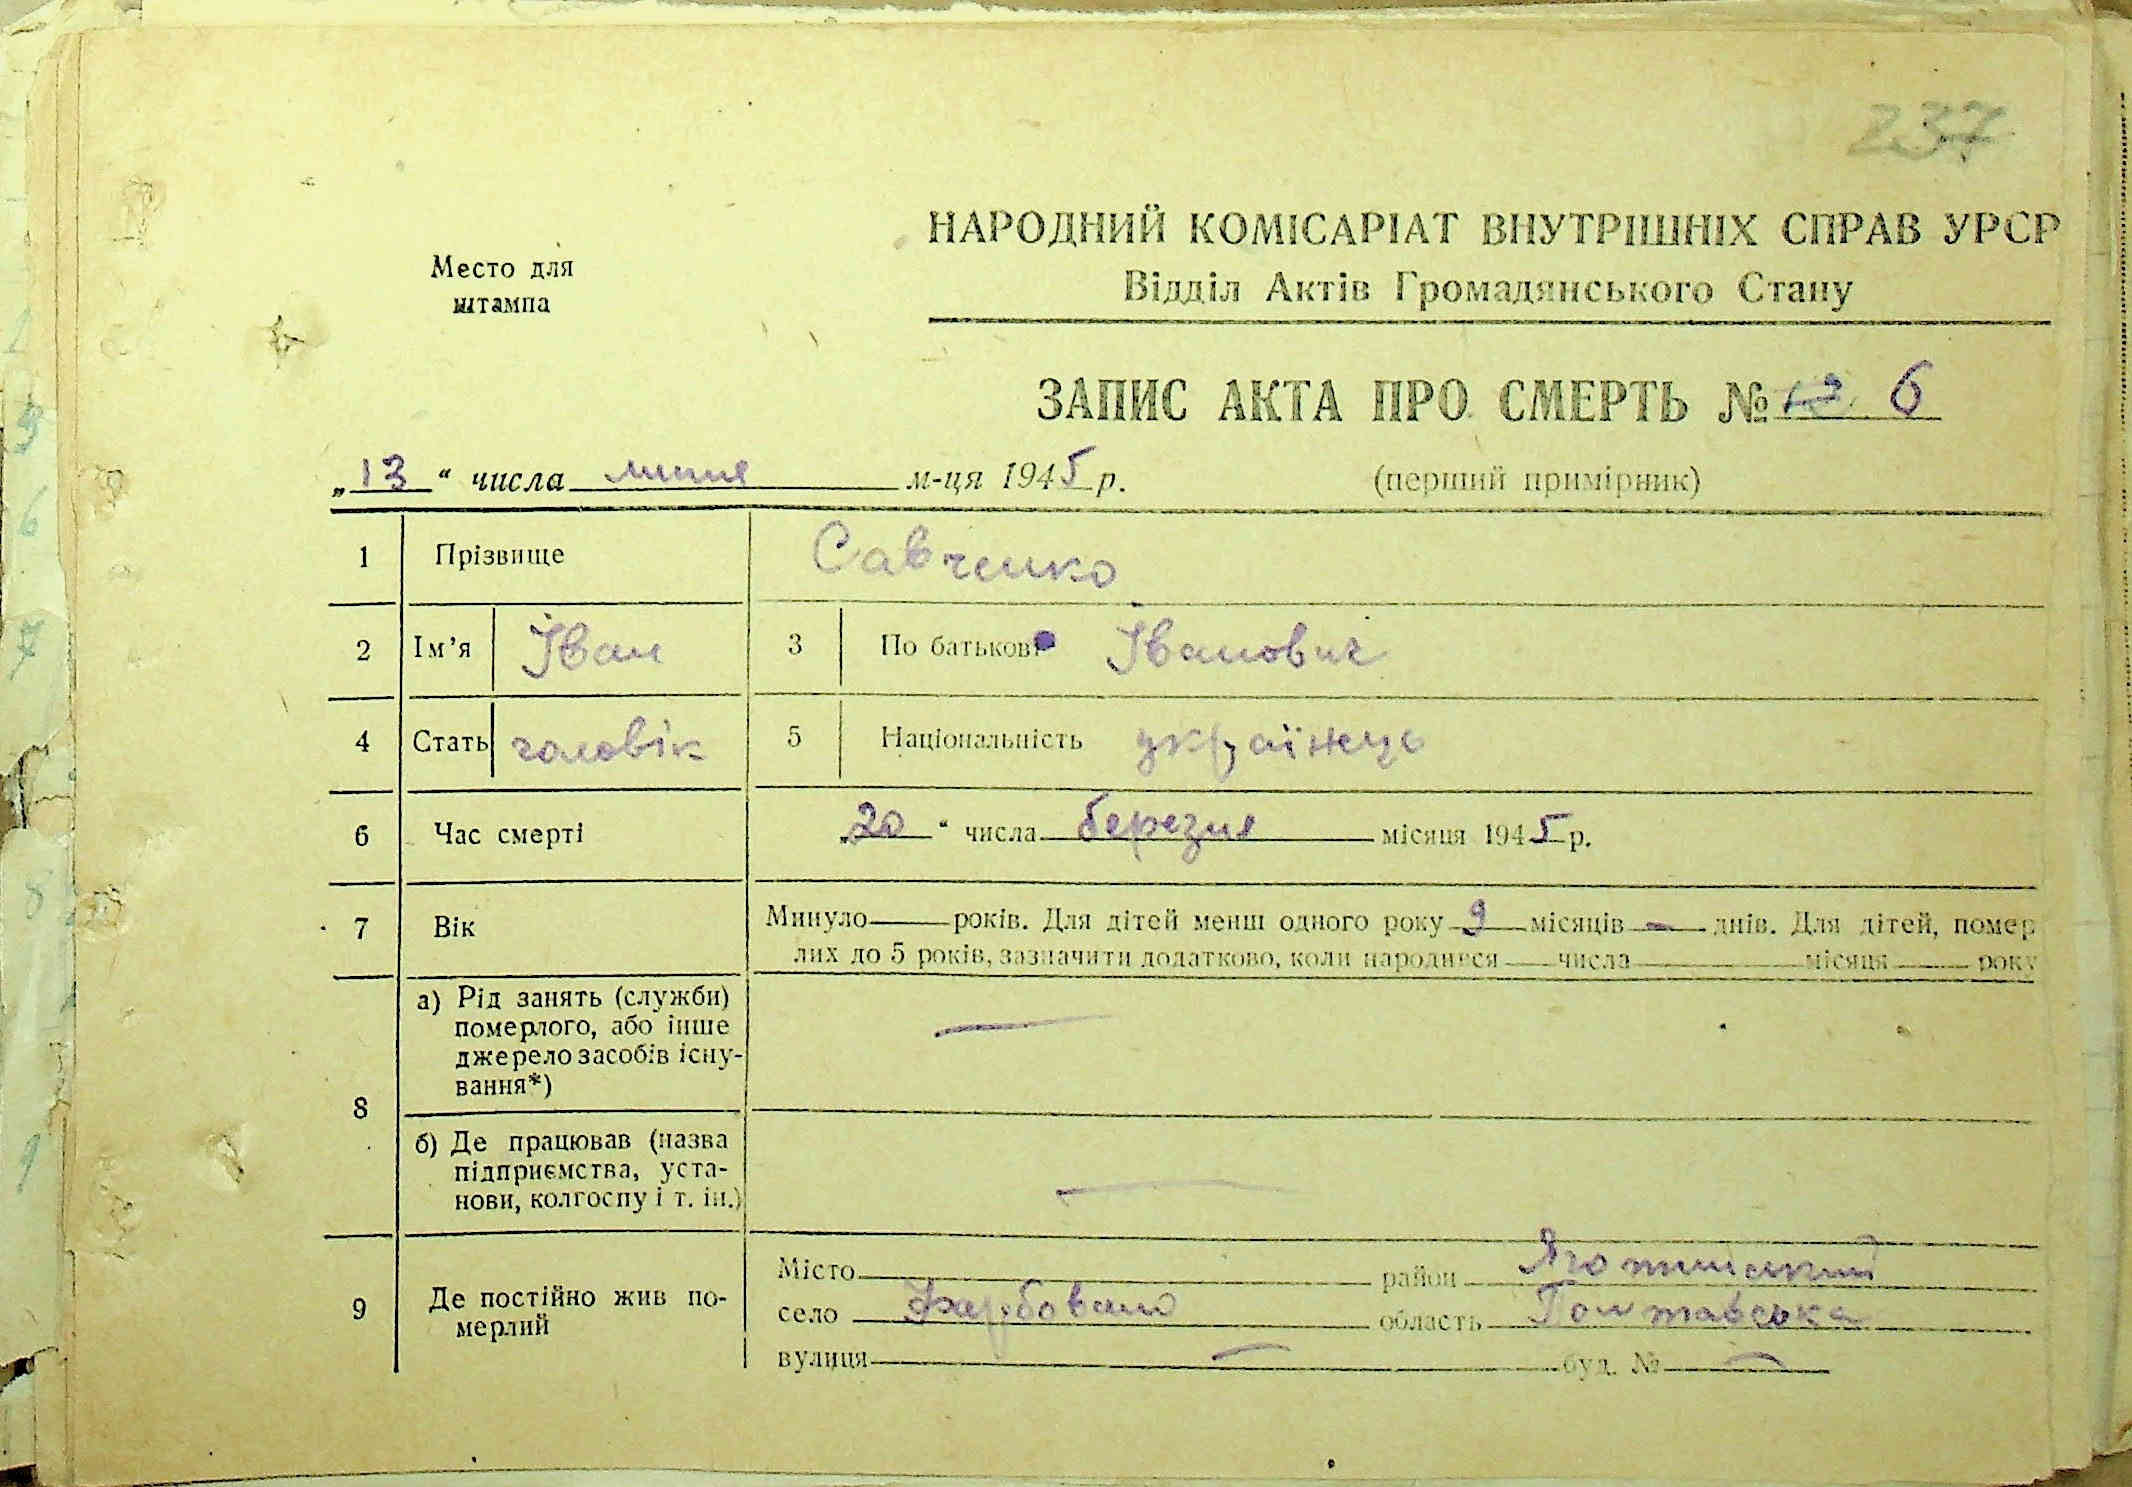 237
НАРОДНИЙ КОМІСАРІАТ ВНУТРІШНІХ СПРАВ УРСР
Место для штампа
Відділ Актів Громадянського Стану
ЗАПИС АКТА ПРО СМЕРТЬ № 6
„13“ числа липня м-ця 1945 р. (перший примірник)
1 Прізвище Савченко
2 Ім’я Іван 3 По батькові Іванович
4 Стать чоловік 5 Національність українець
6 Час смерті „20“ числа березня місяця 1945 р.
7 Вік Минуло — років. Для дітей менш одного року 9 місяців — днів. Для дітей, помер
лих до 5 років, зазначити додатково, коли народився числа місяця року
8 а) Рід занять (служби)
померлого, або інше
джерело засобів існу-
вання*) —
б) Де працював (назва
підприємства, уста-
нови, колгоспу і т. ін.) —
9 Де постійно жив по-
мерлий
Місто район Яготинський
село Фарбовано область Полтавська
вулиця — буд. № —